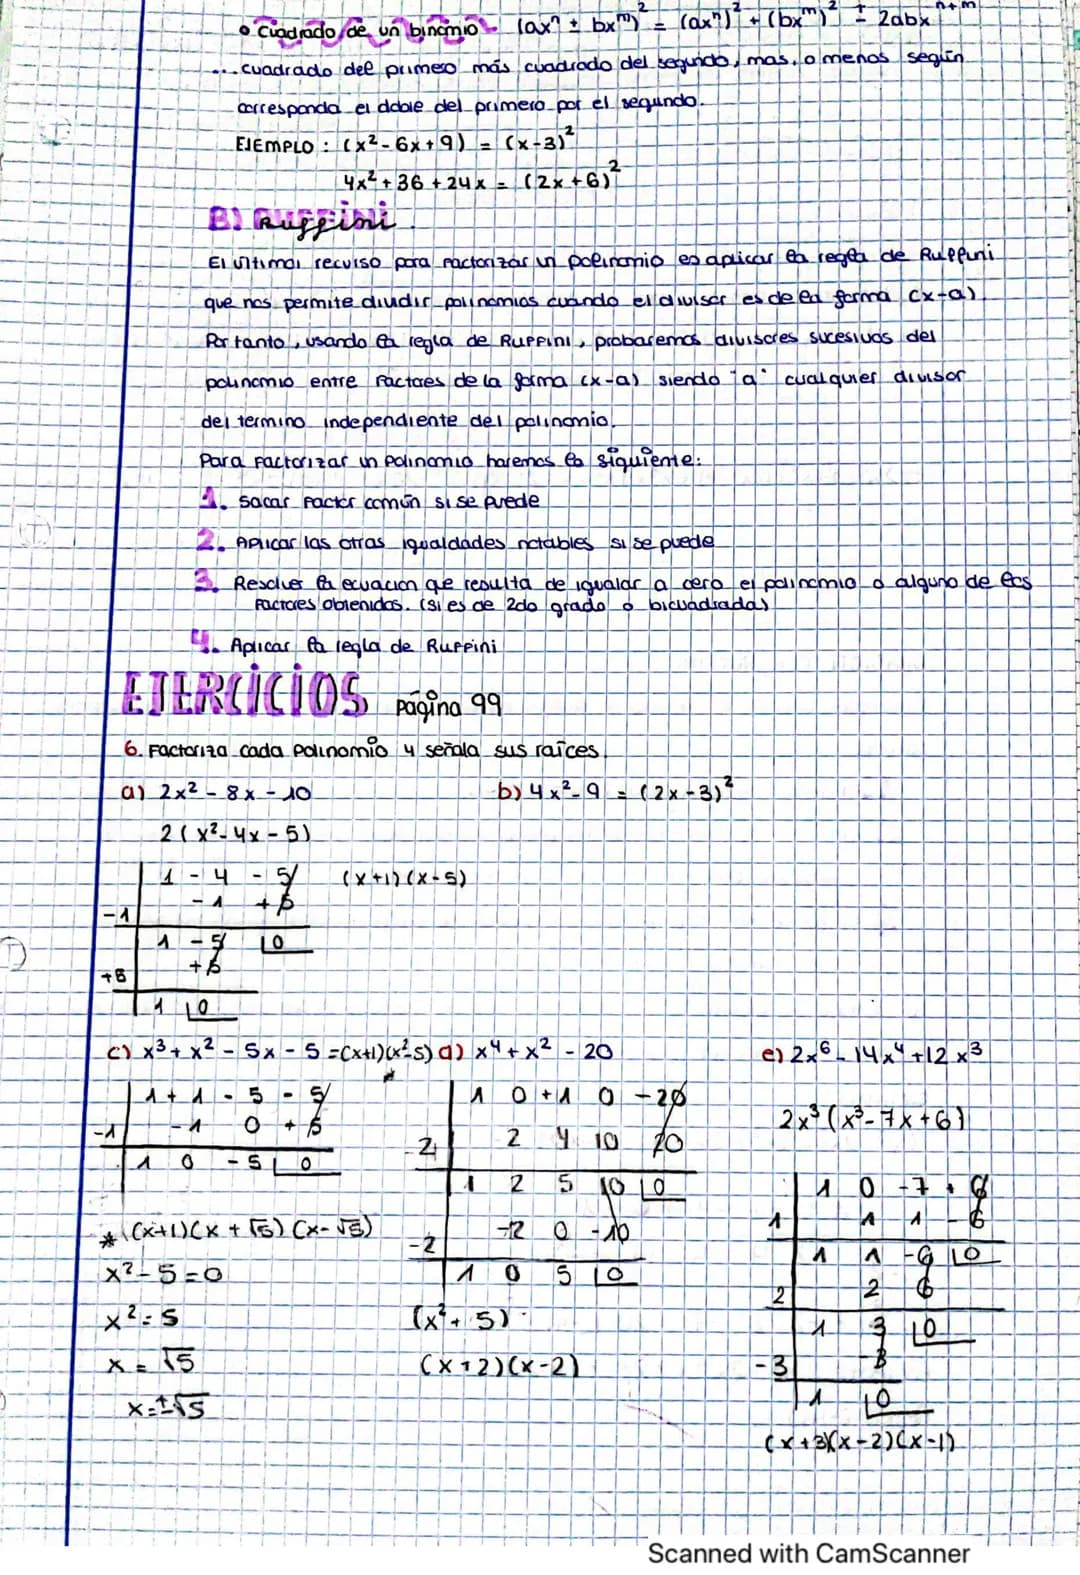 • Cuadrado de un binomio (axⁿ ± bxᵐ)² = (axⁿ)² + (bxᵐ)² ± 2abxⁿ⁺ᵐ
...cuadrado del primero más cuadrado del segundo, mas, o menos según
corresponda el doble del primero por el segundo.
EJEMPLO : (x² - 6x + 9) = (x-3)²
4x² + 36 + 24x = (2x + 6)²
B) Ruffini.
El último recurso para factorizar un polinomio es aplicar la regla de Ruffini
que nos permite dividir polinomios cuando el divisor es de la forma (x-a).
Por tanto, usando la regla de Ruffini, probaremos divisores sucesivos del
polinomio entre factores de la forma (x-a) siendo "a" cualquier divisor
del termino independiente del polinomio.
Para factorizar un polinomio haremos lo siguiente:
1. Sacar factor común si se puede
2. Aplicar las otras igualdades notables si se puede
3. Resolver la ecuación que resulta de igualar a cero el polinomio o alguno de los
factores obtenidos. (Si es de 2do grado o bicuadrada)
4. Aplicar la regla de Ruffini
EJERCICIOS página 99
6. Factoriza cada polinomio y señala sus raíces.
a) 2x² - 8x - 10 b) 4x² - 9 = (2x-3)²
2(x² - 4x - 5)
1 - 4 - 5 (x+1)(x-5)
-1 -1 +5
1 -5 0
+5 +5
1 0
c) x³ + x² - 5x - 5 = (x+1)(x²-5) d) x⁴ + x² - 20 e) 2x⁶ - 14x⁴ + 12x³
*
2x³(x³ - 7x + 6)
1 + 1 - 5 - 5
-1 -1 0 + 5
1 0 - 5 0
* (x+1)(x + √5)(x - √5)
x² - 5 = 0
x² = 5
x = √5
x = ±√5
1 0 + 1 0 - 20
2 2 4 10 20
1 2 5 10 0
-2 -2 0 -10
1 0 5 0
(x² + 5) ·
(x + 2)(x - 2)
1 0 - 7 + 6
1 1 1 - 6
1 1 -6 0
2 2 6
1 3 0
-3 -3
1 0
(x+3)(x-2)(x-1)
Scanned with CamScanner